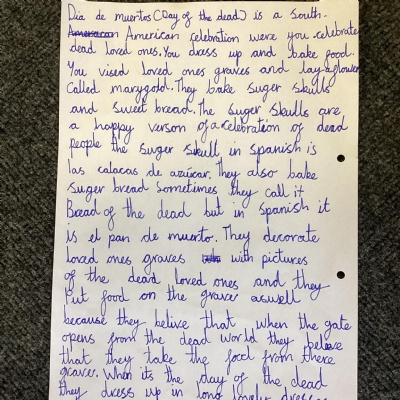 Dia de muertos (Day of the dead) is a South.
American American celebration were you celebrate
dead loved ones. You dress up and bake food.
You vised loved ones graves and lay a flower
called marygold. They bake suger skulls
and sweet bread. The suger skulls are
a happy verson of a celebration of dead
people the suger skull in spanish is
las calacas de azúcar. they also bake
suger bread sometimes they call it
Bread of the dead but in spanish it
is el pan de muerto. They decorate
loved ones graves with pictures
of the dead loved ones and they
Put food on the graves aswell
because they belive that when the gate
opens from the dead world they beleve
that they take the food from there
graves. When its the day of the dead
they dress up in long lovely dresses